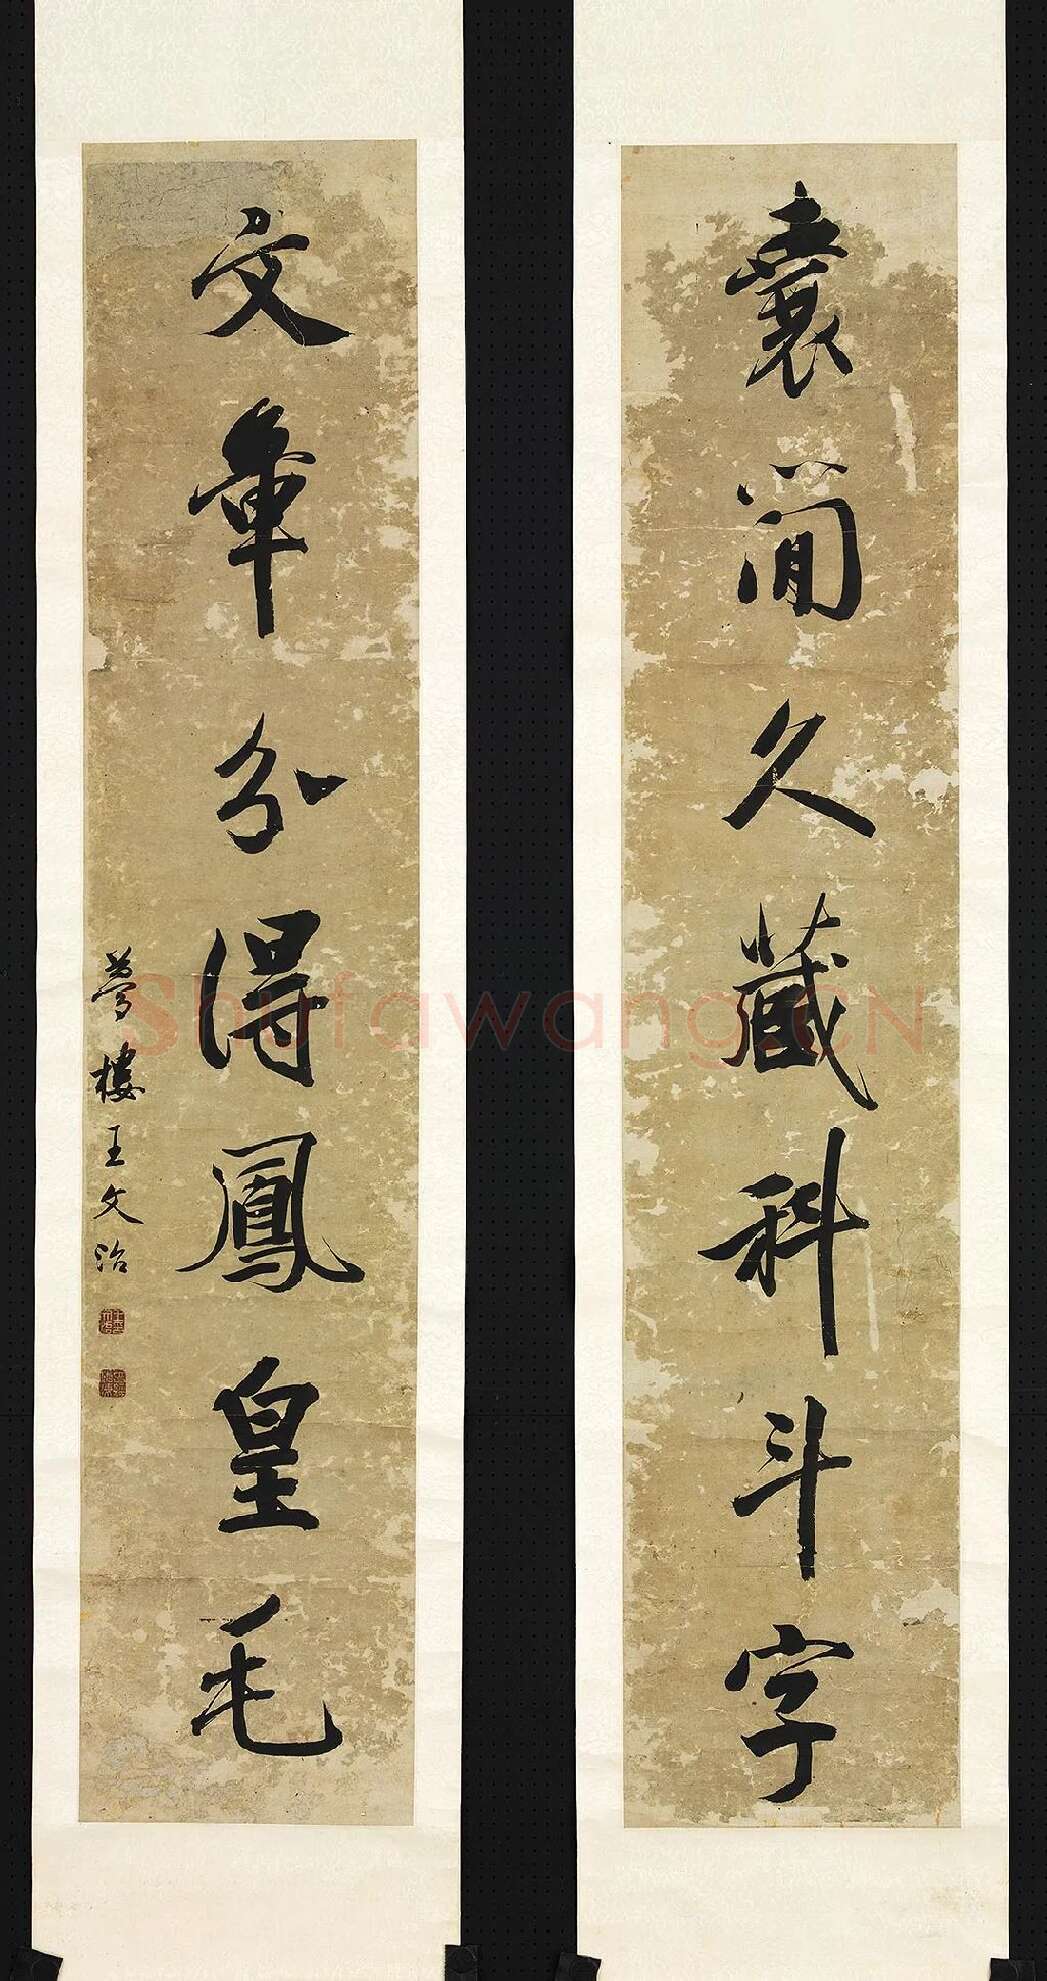 囊简久藏科斗字
文章分得鳳皇毛
夢樓王文治
Shufawang.CN